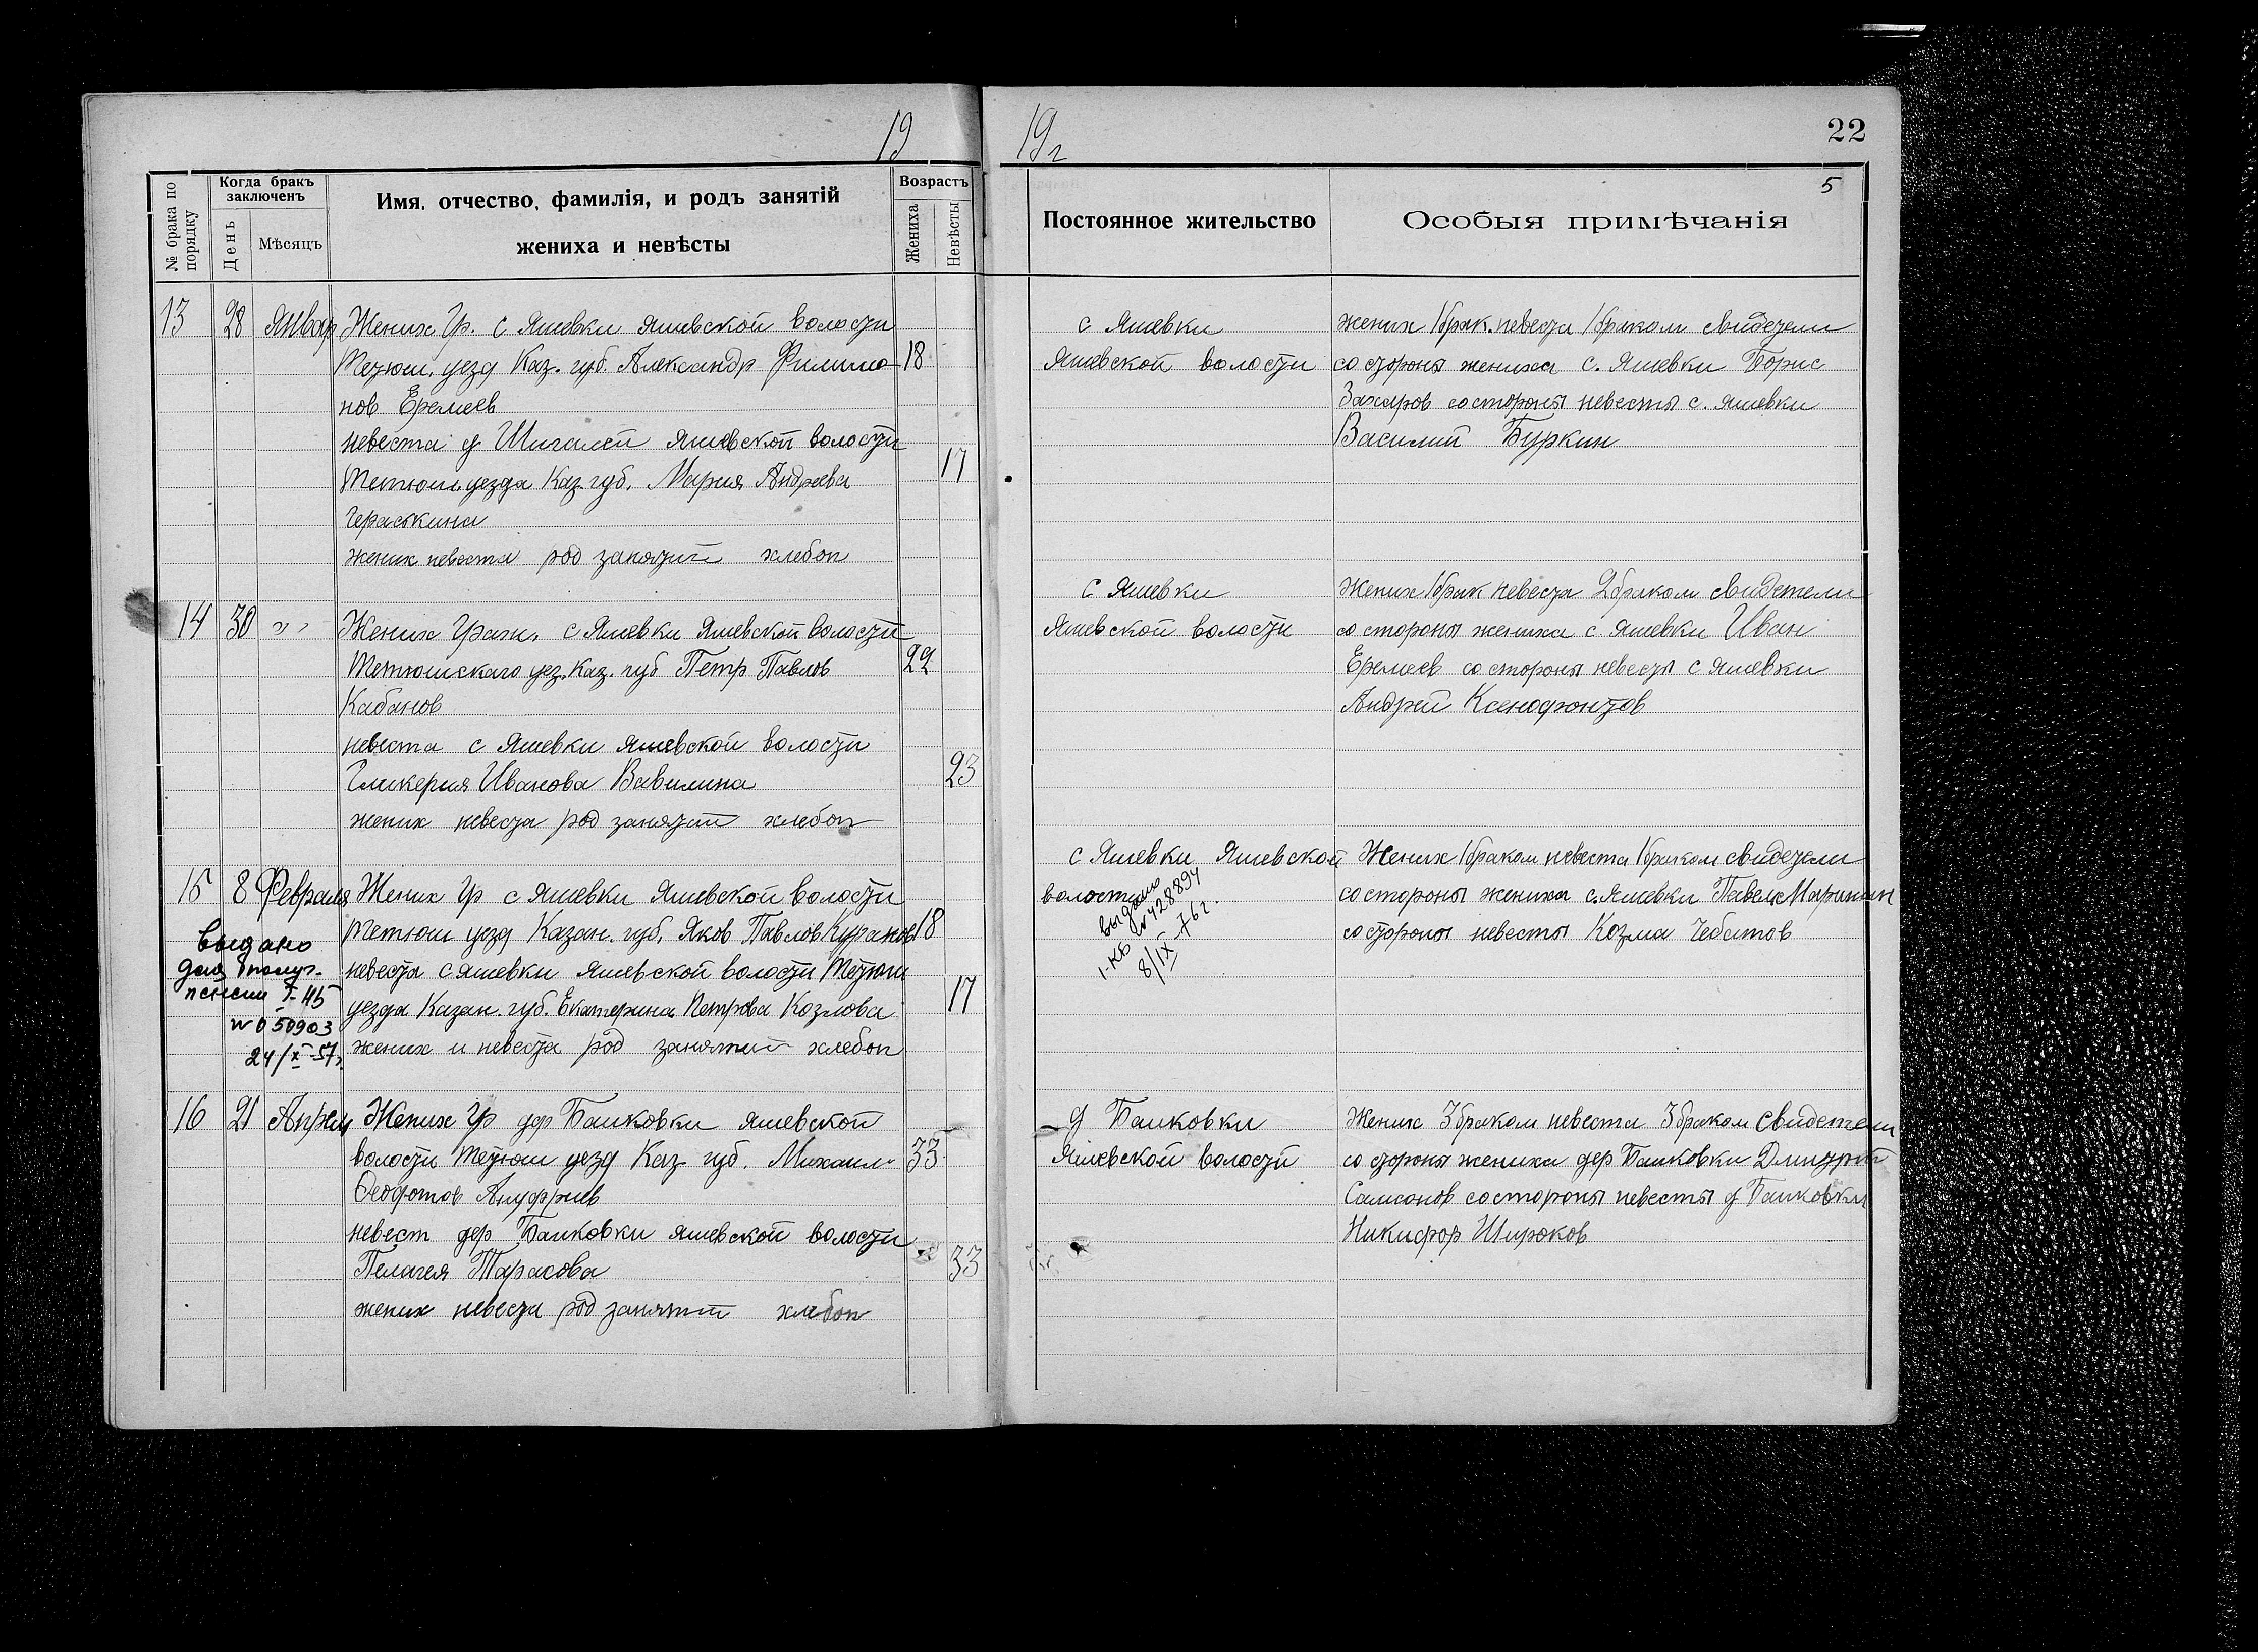 19
19 г
22
5
№ брака по порядку
Когда бракъ заключенъ
День
Мѣсяцъ
Имя, отчество, фамилія, и родъ занятій
жениха и невѣсты
Возрастъ
Жениха
Невѣсты
Постоянное жительство
Особыя примѣчанія
13 28 Январ Жених Гр. с Яшевки Яшевской волости
Тетюш. уезд Каз. губ. Александр Филимо- 18
нов Еремеев
невеста д Шигалей Яшевской волости
Тетюш. уезда Каз. губ. Мария Андреева 17
Гераськина
жених невеста род занятий хлебоп
с Яшевки
Яшевской волости
жених 1 брак. невеста 1 браком свидетели
со стороны жениха с. Яшевки Борис
Захаров со стороны невесты с. Яшевки
Василий Буркин
14 30 " " Жених Граж. с Яшевки Яшевской волости
Тетюшскаго уез. Каз. губ Петр Павлов 22
Кабанов
невеста с Яшевки Яшевской волости
Гликерия Иванова Вавилина 23
жених невеста род занятий хлебоп
с Яшевки
Яшевской волости
Жених 1 брак невеста 2 браком свидетели
со стороны жениха с Яшевки Иван
Еремеев со стороны невесты с Яшевки
Андрей Ксенофонтов
15 8 Февраля Жених Гр с Яшевки Яшевской волости
Тетюш уезд Казан. губ. Яков Павлов Куранов 18
невеста с Яшевки Яшевской волости Тетюш
уезда Казан. губ. Екатерина Петрова Козлова 17
жених и невеста род занятий хлебоп
выдано
для получ.
пенсии
№ 050903
24/X-57г.
с Яшевки Яшевской
волости
выдано
1-КБ №428894
8/IX-76г.
Жених 1 браком невеста 1 браком свидетели
со стороны жениха с. Яшевки Павел Маринин
со стороны невесты Козма Чебатов
16 21 Апрель Жених Гр дер Башковки Яшевской
волости Тетюш уезд Каз губ. Михаил 33
Феофотов Ануфриев
невест дер Башковки Яшевской волости
Пелагея Тарасова 33
жених невеста род занятий хлебоп
д Башковки
Яшевской волости
Жених 3 браком невеста 3 браком свидетели
со стороны жениха дер Башковки Дмитрий
Самсонов со стороны невесты д Башковки
Никифор Широков